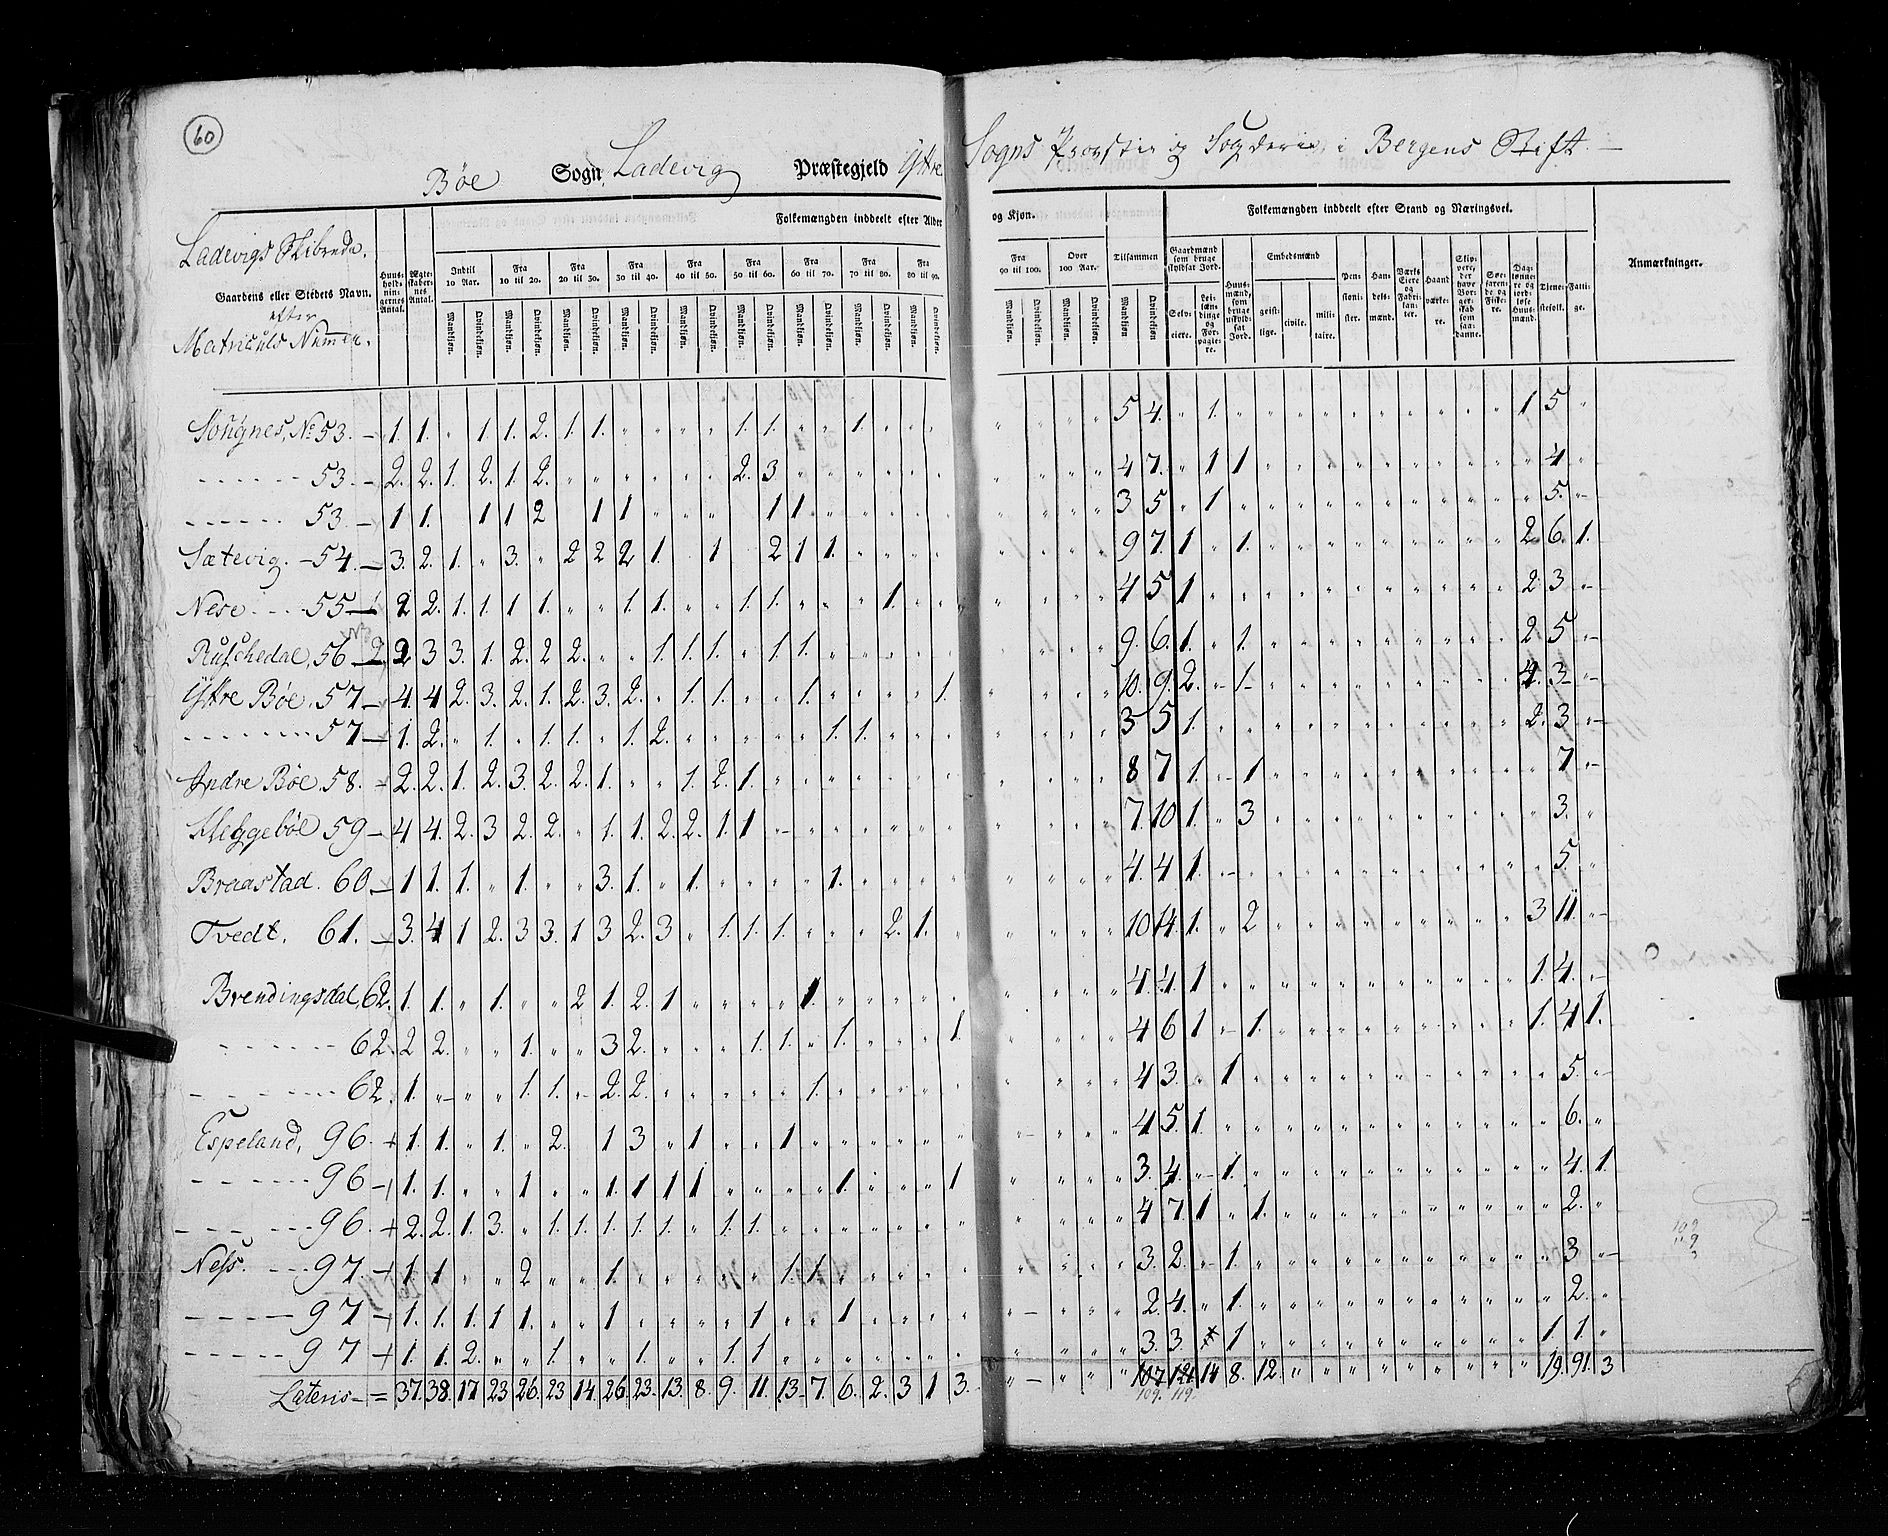 60
Bøe Sogn, Ladevig Præstegjeld Yttre Sogns Provstie og Fogderie i Bergens Stift.
Ladevigs Skibrede.
Gaardens eller Stedets Navn.
efter
Matriculs Nummer.
Huusholdningernes Antal.
Ægteskabernes Antal.
Folkemængden inddeelt efter Alder og Kjøn.
Indtil 10 Aar. Fra 10 til 20. Fra 20 til 30. Fra 30 til 40. Fra 40 til 50. Fra 50 til 60. Fra 60 til 70. Fra 70 til 80. Fra 80 til 90. Fra 90 til 100. Over 100 Aar. Tilsammen
Mandkjøn. Qvindekjøn.
Folkemængden inddeelt efter Stand og Næringsvei.
Gaardmænd som bruge skyldsat Jord.
Selveiere. Leilændinge og Forpagtere.
Huusmænd, som bruge uskyldsat Jord.
Embedsmænd
geistlige. civile. militaire.
Pensionister. Handelsmænd. Værks Eiere og Fabrikanter. Haandværkere. Skippere, der have Borgerskab som saadanne. Søefarende og Fiskere. Daglønnere og jordløse Huusmænd. Tienestefolk. Fattige.
Anmærkninger.
Sougnes, No 53. 1. 1. " 1 1. 2. 1 1. " " " " 1. 1. " " 1. " " " 5 4. " 1. 1 5 "
53. 2. 2. 1. 2. 1. 2. " " " " " " 2. 3 4 7. " 1 1 4
53. 1 1. 1 1 2 1 1 " " " 1 1 3 5 " 1 5.
Sætevig. 54. 3. 2. 1. " 3. " 2 2 2 1 1 2 1 1. 9 7. 1 " 1. 2 6. 1.
Nese 55 2 2. 1. 1. 1 1. " " 1 1. " " 1. 1. " " " 1. 4 5 1 2. 3
Ruschedal, 56 2 3 3. 1. 2. 2 2. " " 1. 1. 1. " 1. 1. 9. 6. 1. " 1. 2 5
Yttre Bøe. 57 4. 4 2. 3. 2. 1. 2. 3. 2. " 1. 1. " " 1. 1. 10. 9. 2. 1 4. 3
57 1. 2. " 1. " 1. 1. " 1. 2. " " " " " 1. 1. 3 5 1. 2. 3
Indre Bøe. 58. 2. 2. 1. 2. 3. 2. 2. 1. " " 1. 2. 1 8 7 1. 1 7
Kleggebøe 59 4 4. 2. 3 2. 2. " 1. 1. 2. 2. 1. 1 7. 10 1. " 3 3.
Braastad. 60 1 1. 1. " 1. " " 3. 1. " 1. " " " " 1. 4. 4 1. 5.
Tvedt, 61. 3. 4 1 2. 3 3. 1 3 2. 3 " 1. 1. 1. " " " 2. 1. 10 14. 1. " 2 3 11.
Brendingsdal, 62. 1. 1. " 1. " " 2 1. 2. 1 " " " " 1. 4. 4. 1 1. 4.
62. 2 2. " " 1. " " 3 2. " " " 1. 1. " 1. 1. 4 6 1 1. 1. 4 1.
62. 1. " " " 1. 1. " 2. 2. 1. 4 3. " 1 5.
Espeland, 96. 1. 1. " 1. " 2. 1 3 " 1 " " 1 4 5. 1. 6.
96 1. 1. " " 1 " " 1. 1 1 1 " " " " 1. " " " 1 3. 4. 1. 4. 1
96. 2. 2. 1. 3. " 1. 1. 1. 1. 1. " 1. 1. 4 7. 1 " 1. 2.
Ness. 97. 1. 1. " " 2 " " 1. " " " " " 1. 1. 3. 2. 1. 3
97 1. 1. 1. 1 1. " " 1 " " " " 1 " " 1 2. 4. " 1. 2.
97 1. 1. 2. " " 1. " " 1. " " 1. 1 3. 3. 1 1. 1.
Lateris = 37. 38. 17. 23. 26. 23 14. 26. 23. 13. 8. 9. 11. 13. 7. 6. 2. 3 1 3. 107. 121 14 8. 12. 19. 91. 3
109. 119.
109
119